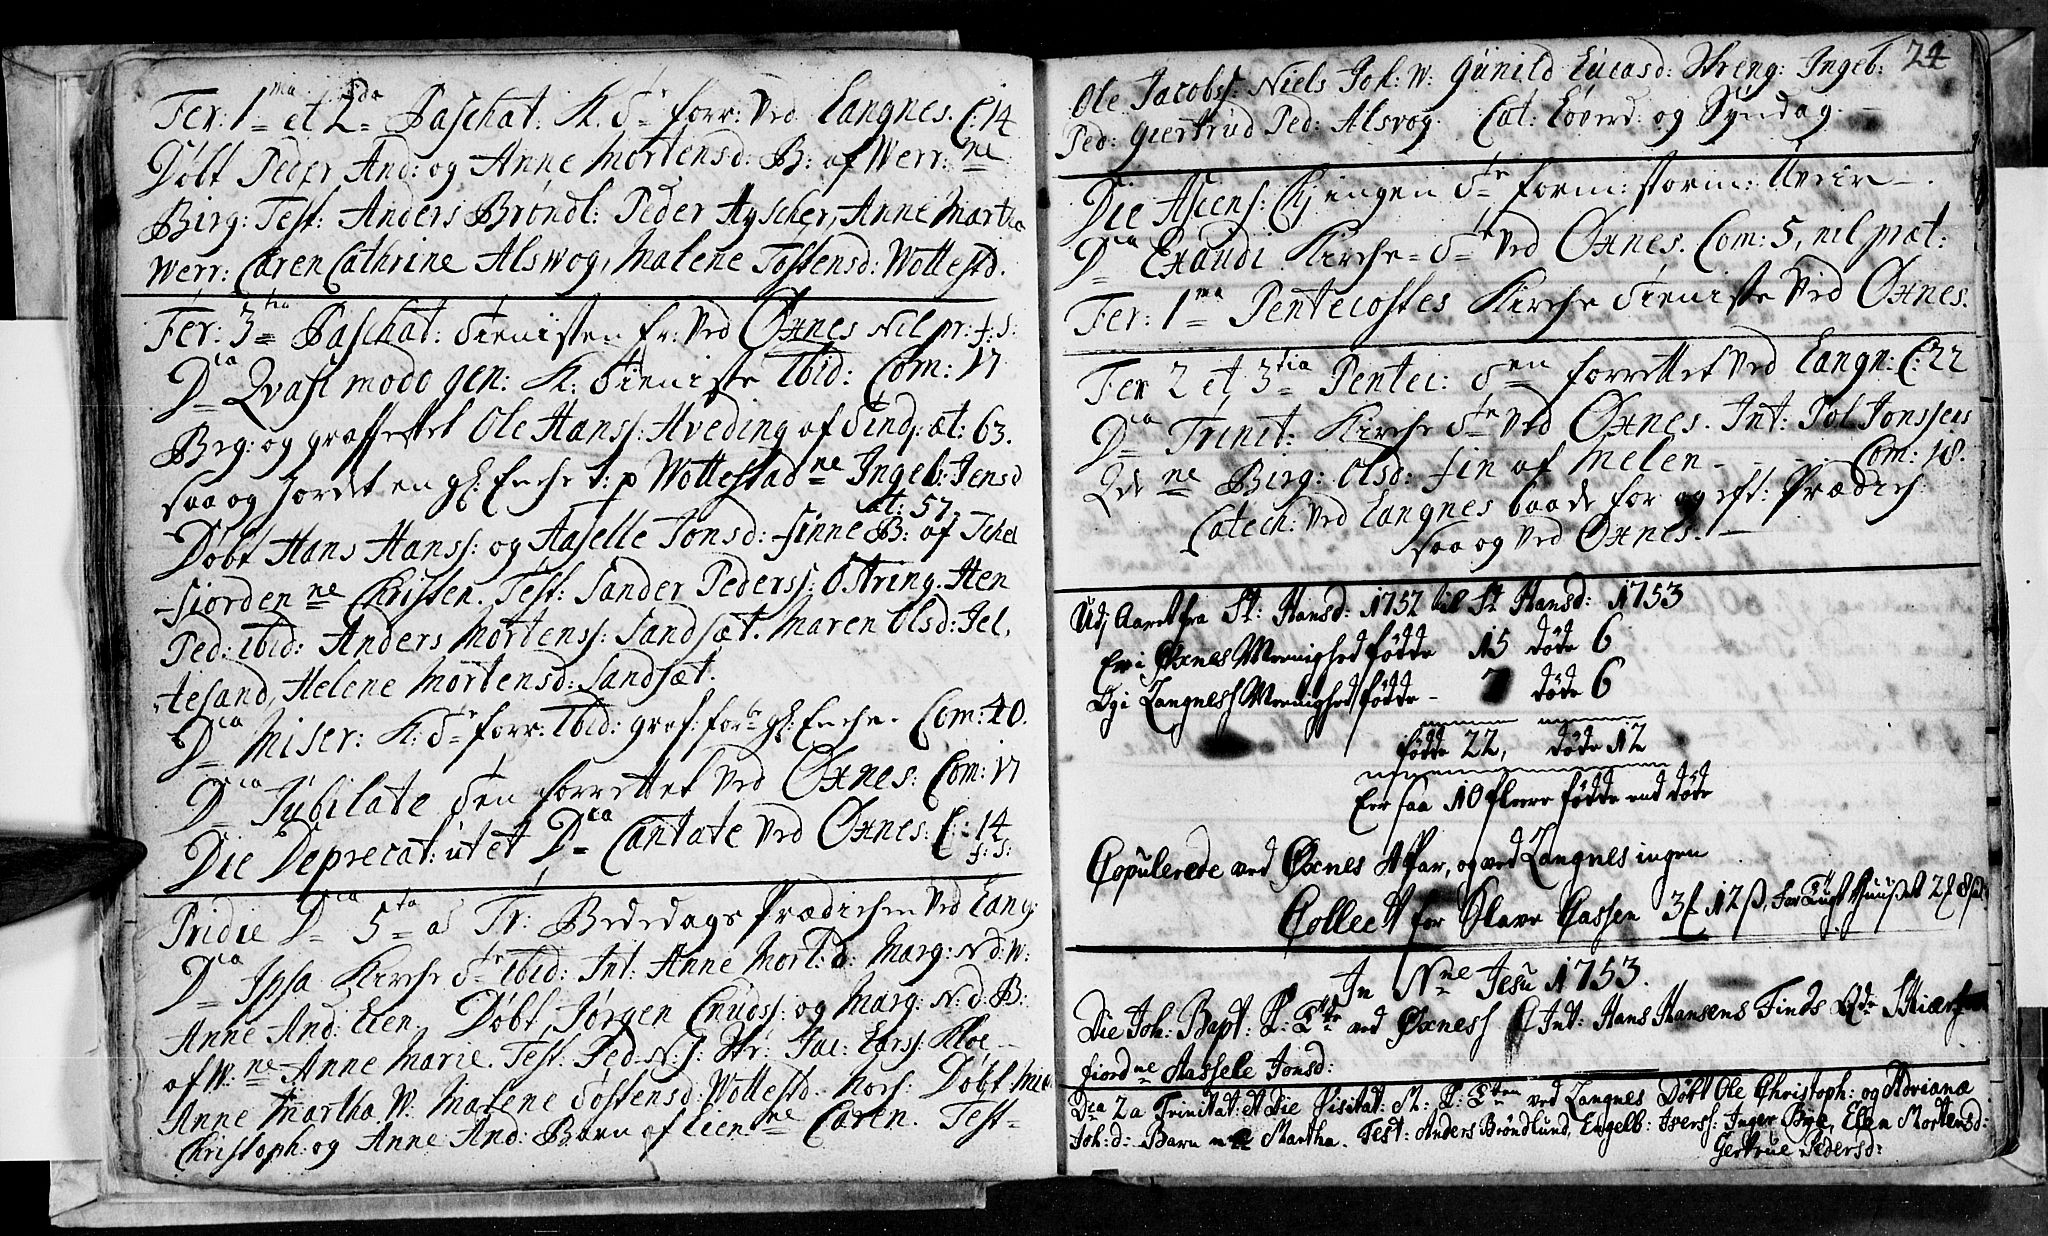 Fer: 1ma et 2da Paschat: K. Ste forr: Ved Langnes. C: 14
Døbt Peder And: og Anne Mortensd: B: af Werr: ne
Birg: Test: Anders Brøndl: Peder Ayscher, Anne Martha
Werr: Caren Cathrine Alswog, Malene Tostensd: Wottestd.
Fer: 3tia Paschat: Tienisten fr: Ved Øxnes Nil pr: f: s:
Dca Qvasi modo gen: K: Tieniste Ibid: Com: 17
Beg: og graffestet Ole Hanss: Hveding af Tind, æt: 63.
saa og Jordet en gl: Enche t: p Wottestad ne Ingeb: Jensd
æt: 57.
Døbt Hans Hanss: og Haselle Jonsd: finne B: af Schel
-fiorden ne Christen. Test: Sander Pederss: Ostring. Hen
Ped: ibid: Anders Mortenss: Sandsæt. Maren Olsd: Jel,
tesand, Helene Mortensd: Sandsæt.
Dca Miser: K: Ste forr: Ibid: graf: forbe gl: Enche. Com: 20.
Dca Jubilate Sten forrettet Ved Øxnes: Com: 17
Die Deprecat: ut et Dca Cantate Ved Øxnes: C: 14
f: s:
Pridie Dca 5ta a Tr: Bededags Prædichen Ved Lang:
Dca Ipsa Kirche Ste ibid: Int: Anne Mort: d: Marg: N: d: W:
Anne And: Lien. Døbt Jørgen Cnudss: og Marg: N: d: B:
af W: ne Anne Marie. Test: Ped: N: s: Str: Jac: Larss: Kloe
Anne Martha W: Malene Tostensd: Wottestd. Hors: Døbt
Christoph: og Anne And: Barn af Lien ne Caren. Test-
24
Ole Jacobss: Niels Joh: W: Gunild Lucasd: Streng: Ingeb:
Ped: Giertrud Ped: Alsvog. Cat: Løverd: og Syndag.
Die Ascens: Chj ingen Ste form: storm: Uveir-.
Dca Exaudi Kirche-Ste Ved Øxnes. Com: 5, nil præt:
Fer: 1ma Pentecostes Kirche Tieniste Ved Øxnes.
Fer 2 et 3tia Pentec: Sten forrettet Ved Langn: C: 22
Dca Trinit: Kirche Ste Ved Øxnes. Int: Pol Jonssens
Qde ne Birg: Olsd: fin af Melen - - - Com: 18.
Catech: Ved Langnes baade for og eft: Prædich:
saa og Ved Øxnes. -
Udj Aaret fra St: Hansd: 1752 til St Hansd: 1753
Er i Øxnes Meenighed fødde 15 døde 6
Og i Langness Meenighed fødde - 7 døde 6
fødde 22, døde 12
Eer saa 10 fleere fødde end døde
Copulerede ved Øxnes 1 Par, og ved Langnes ingen
Collect for Slave Cassen 3 f 12 ß, for Tugt Huuset
In Nne Jesu 1753.
Die Joh: Bapt: K: Tste ved Øxness Int: Hans Hansens Finds Qde
fiord ne Aassele Jonsd:
Dca 2a Trinitat: et Die Visitat: M: K: Tsten ved Langnes Døbt Ole Christoph: og Adriana
Joh: d: Barn ne Martha. Test: Anders Brøndlund, Engelb: Iverss: Inger Bye, Ellen Mortensd:
Gertrue Pedersd: